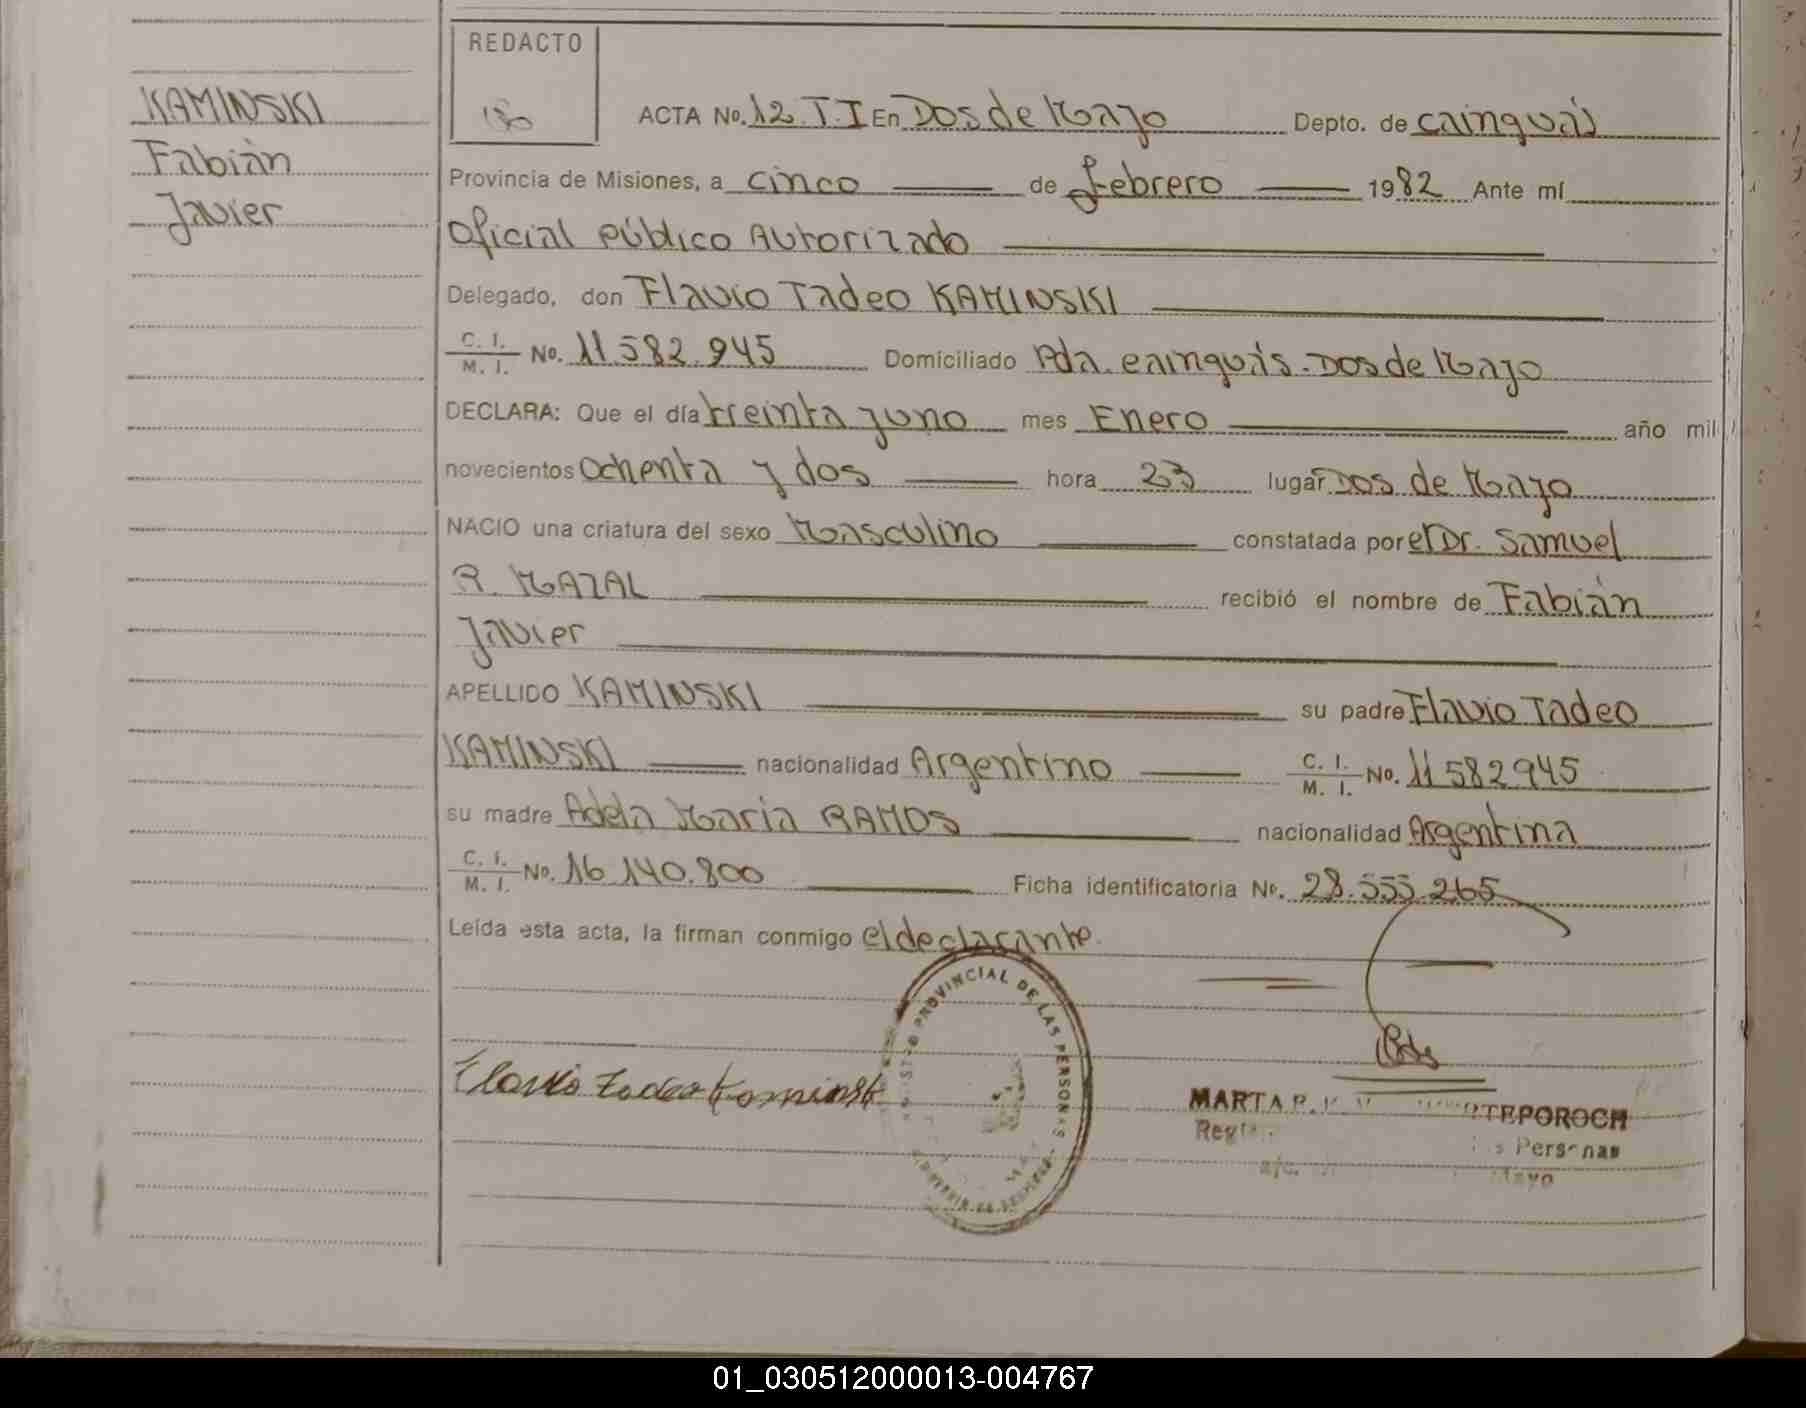 KAMINSKI
Fabián
Javier
REDACTO
ACTA No. 12. T. I En Dos de Mayo Depto. de Cainguás
Provincia de Misiones, a cinco de febrero 1982 Ante mí
Oficial Público Autorizado
Delegado, don Flavio Tadeo KAMINSKI
C. I. / M. I. No. 11.582.945 Domiciliado Pda. Cainguás. Dos de Mayo
DECLARA: Que el día treinta y uno mes Enero año mil
novecientos Ochenta y dos hora 23 lugar Dos de Mayo
NACIO una criatura del sexo Masculino constatada por el Dr. Samuel
R. MAZAL recibió el nombre de Fabián
Javier
APELLIDO KAMINSKI su padre Flavio Tadeo
KAMINSKI nacionalidad Argentino C. I. / M. I. No. 11.582.945
su madre Adela Maria RAMOS nacionalidad Argentina
C. I. / M. I. No. 16.140.800 Ficha identificatoria No. 28.555.265
Leída esta acta, la firman conmigo el declarante.
PROVINCIAL DE LAS PERSONAS
Flavio Tadeo Kaminski
MARTA
Personas
Mayo
01_030512000013-004767